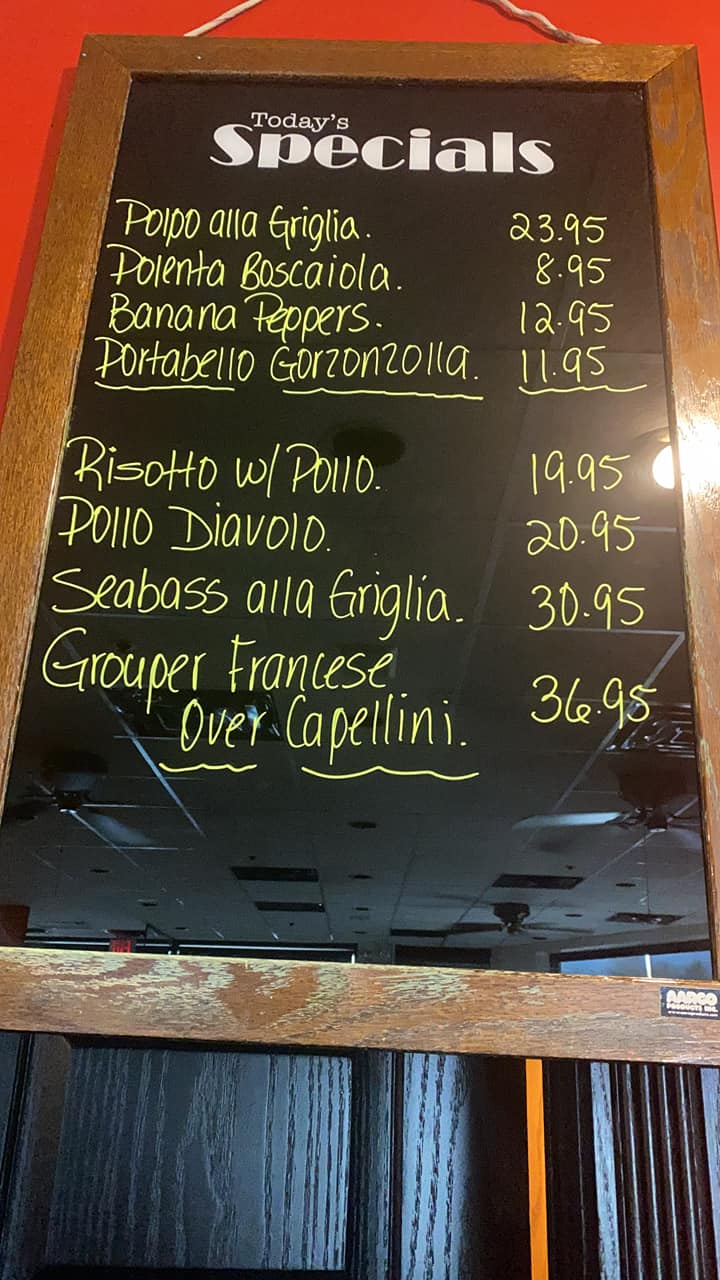 Today's
Specials
Polpo alla Griglia. 23.95
Polenta Boscaiola. 8.95
Banana Peppers. 12.95
Portabello Gorzonzolla. 11.95
Risotto w/ Pollo. 19.95
Pollo Diavolo. 20.95
Seabass alla Griglia. 30.95
Grouper Francese
Over Capellini. 36.95
AARCO
PRODUCTS INC.